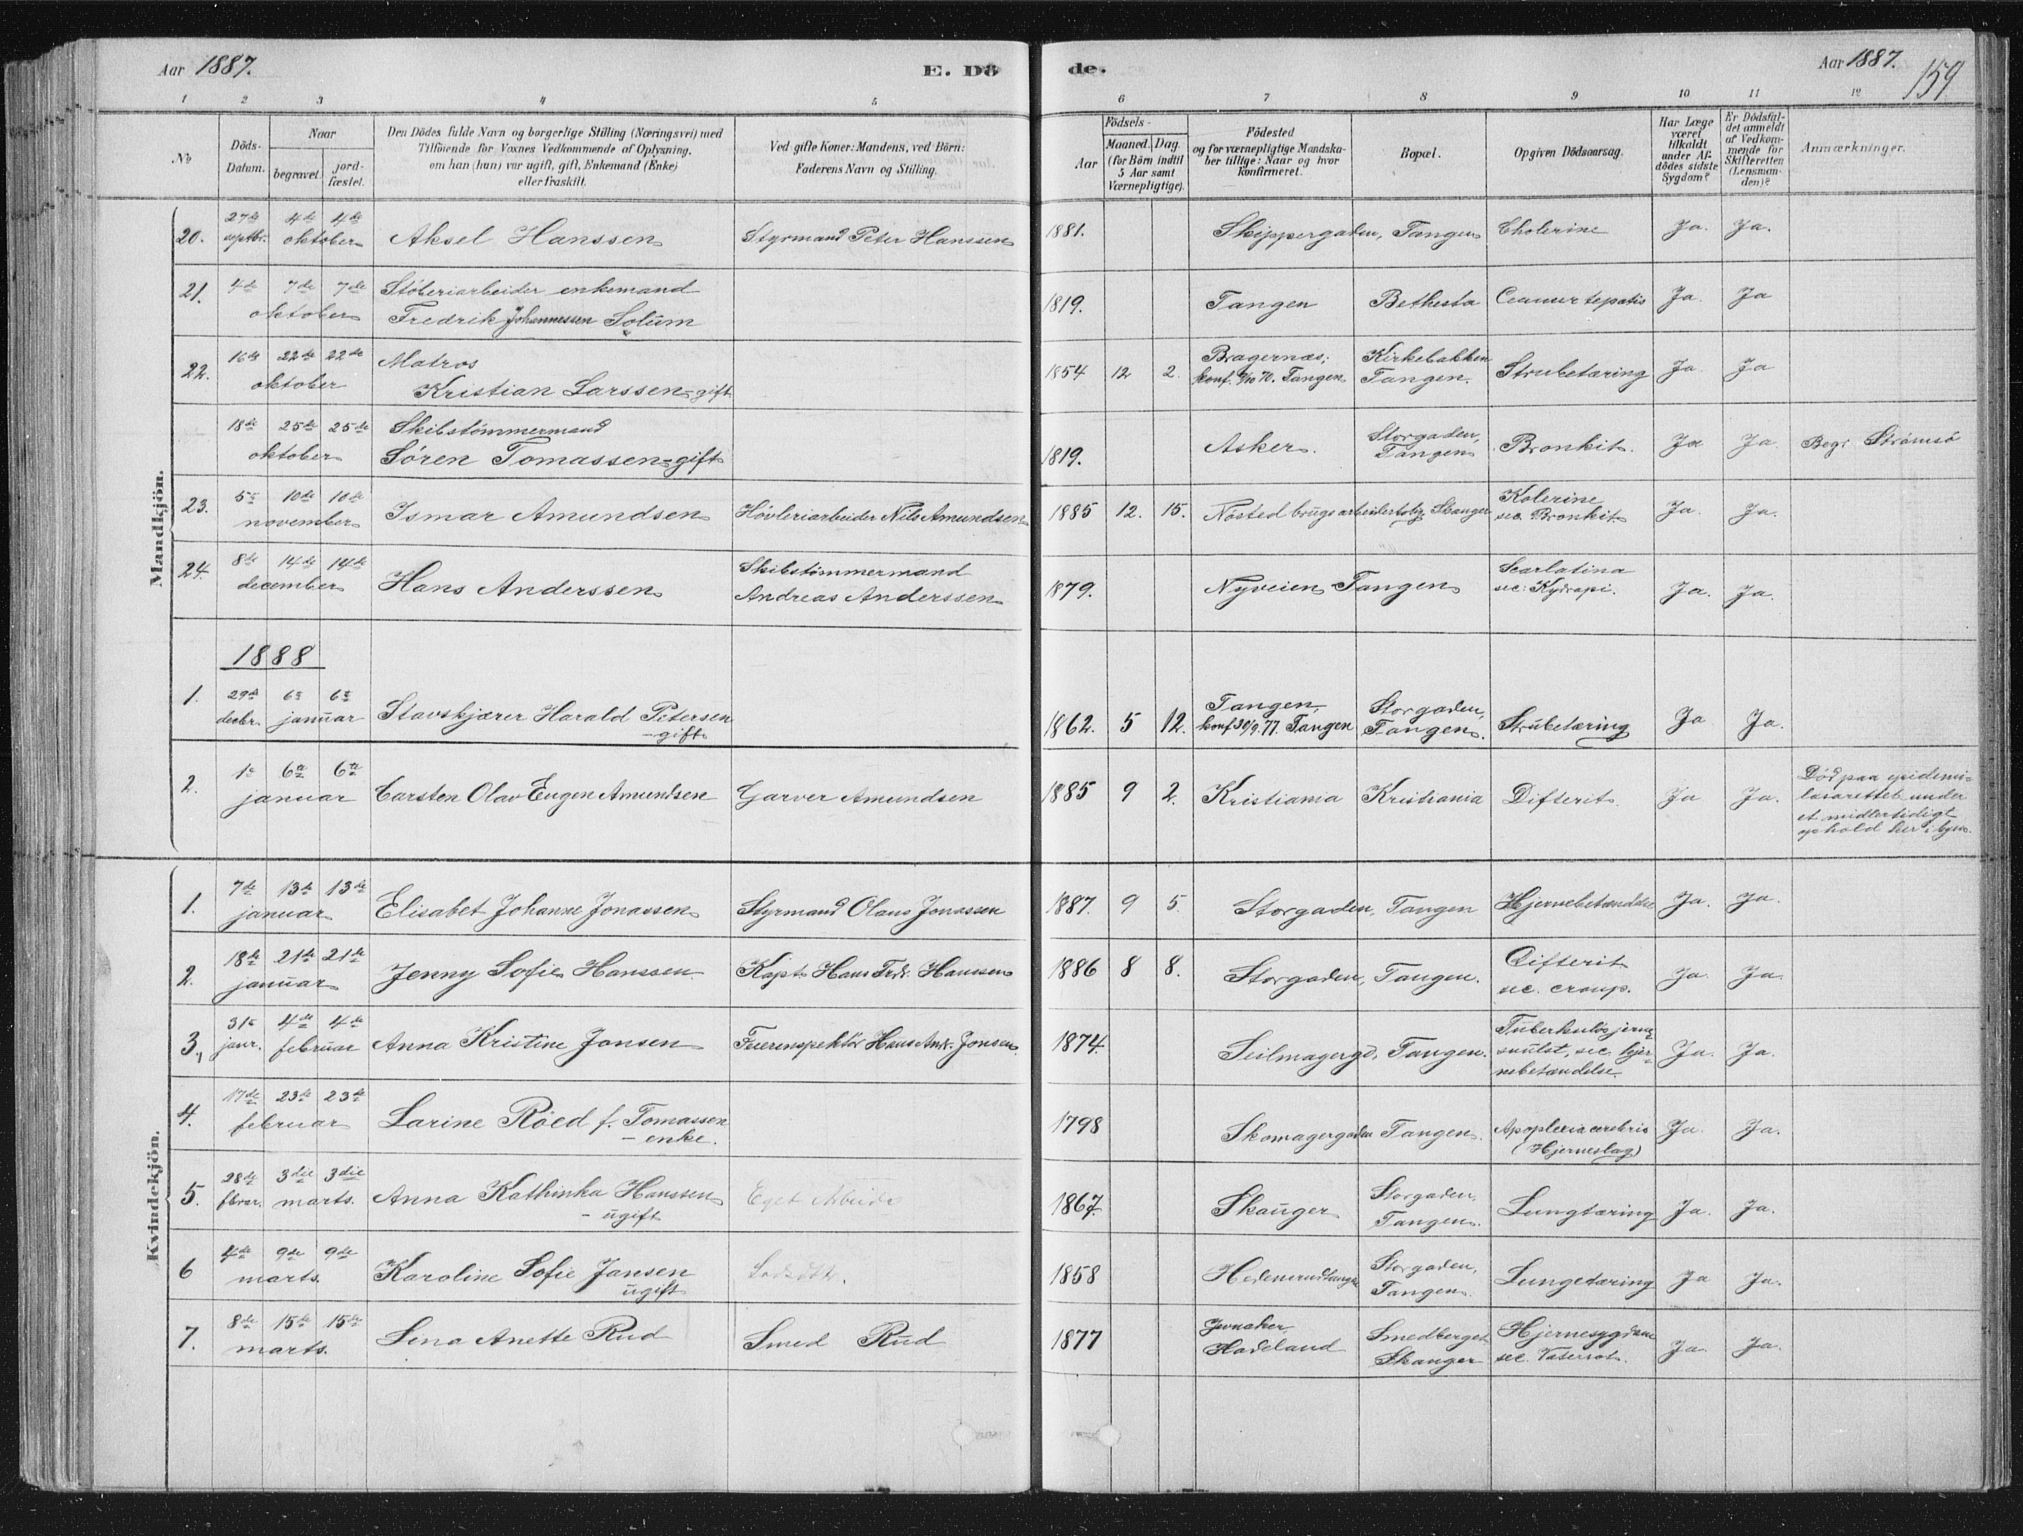 Aar 1887.
E. Dö
de.
Aar 1887.
159
1 2 3 4 5 6 7 8 9 10 11 12
No
Döds-
Datum.
Naar
begravet.
jord-
fæstet.
Den Dödes fulde Navn og borgerlige Stilling (Næringsvei) med
Tilföiende for Voxnes Vedkommende af Oplysning,
om han (hun) var ugift, gift, Enkemand (Enke)
eller fraskilt.
Ved gifte Koner: Mandens, ved Börn:
Faderens Navn og Stilling.
Födsels-
Aar
Maaned. Dag.
(for Börn indtil
5 Aar samt
Værnepligtige).
Födested
og for værnepligtige Mandska-
ber tillige: Naar og hvor
konfirmeret.
Bopæl.
Opgiven Dödsaarsag.
Har Læge
været
tilkaldt
under Af-
dödes sidste
Sygdom?
Er Dödsfal-
det anmeldt
af Vedkom-
mende for
Skifteretten
(Lensman-
den)?
Anmærkninger.
Mandkjön.
20. 27de septbr. 4de 4de oktober Aksel Hanssen Styrmand Peter Hanssen 1881. Skippergaden, Tangen Cholerine Ja. Ja.
21. 4de 7de 7de oktober Støberiarbeider enkemand
Fredrik Johannessen Solum 1819. Tangen Bethesta Ja. Ja
22. 16de 22de 22de oktober Matros
Kristian Larssen - gift 1854 12 2. Bragernæs; konf. Tangen Kirkebakken Tangen. Strubetæring Ja Ja
18de 25de 25de oktober Skibstømmermand
Søren Tomassen - gift 1819. Asker. Storgaden, Tangen Bronkit. Ja Ja Begr. Strømsø
23. 5te 10de 10de november Ismar Amundsen Høvleriarbeider Nils Amundsen 1885 12. 15. Nøsted brugs Skanger Kolerine sec. Bronkit Ja. Ja.
24. 8de 14de 14de december Hans Anderssen Skibstømmermand
Andreas Anderssen 1879. Nyveien Tangen Scarlatina
sec. Ja. Ja.
1888
1. 29de decbr. 6te 6te januar Stavskjærer Harald Petersen
- gift 1862. 5 12. Tangen, konf. 30/9.77. Tangen Storgaden, Tangen. Strubetæring Ja Ja.
2. 1te 6te 6te januar Carsten Olav Eugen Amundsen Garver Amundsen 1885 9 2. Kristiania Kristiania Difterit. Ja Ja. Død paa epidemi-
lasarettet under
et midlertidigt
ophold her i byen.
Kvindekjön.
1. 7de 13de 13de januar Elisabet Johanne Jonassen Styrmand Olaus Jonassen 1887. 9 5. Storgaden, Tangen Hjernebetændelse Ja. Ja.
2. 18de 21de 21de januar Jenny Sofie Hanssen Kapt. Hans Frdr. Hanssen 1886 8 8. Storgaden, Tangen. Difterit
sec. croup. Ja. Ja
3. 31te janr. 4de 4de februar Anna Kristine Jonsen Feierinspektør Hans Andr. Jonsen. 1874. Seilmagergd. Tangen. Tuberkuløs hjerne-
svulst, sec. hjer-
nebetændelse. Ja. Ja.
4. 17de 23de 23de februar Larine Røed f. Tomassen
- enke. 1798 Skomagergaden Tangen. Apoplexia cerebris
(Hjerneslag) Ja. Ja.
5. 28de febrar. 3die 3die marts. Anna Kathinka Hanssen
- ugift Eget Arbeide 1867. Skauger Storgaden, Tangen. Lungtæring Ja. Ja.
6 4de 9de 9de marts. Karoline Sofie Jansen
ugift 1858 Storgaden, Tangen. Lungetæring Ja Ja.
7. 8de 15de 15de marts. Lina Anette Rud Smed Rud 1877 Jevnaker, Hadeland Smedberget Skanger Hjernesygdom
sec. Vatersot. Ja Ja.